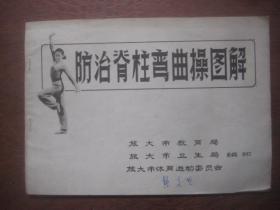 防治脊柱弯曲操图解
旅大市教育局
旅大市卫生局 编制
旅大市体育运动委员会